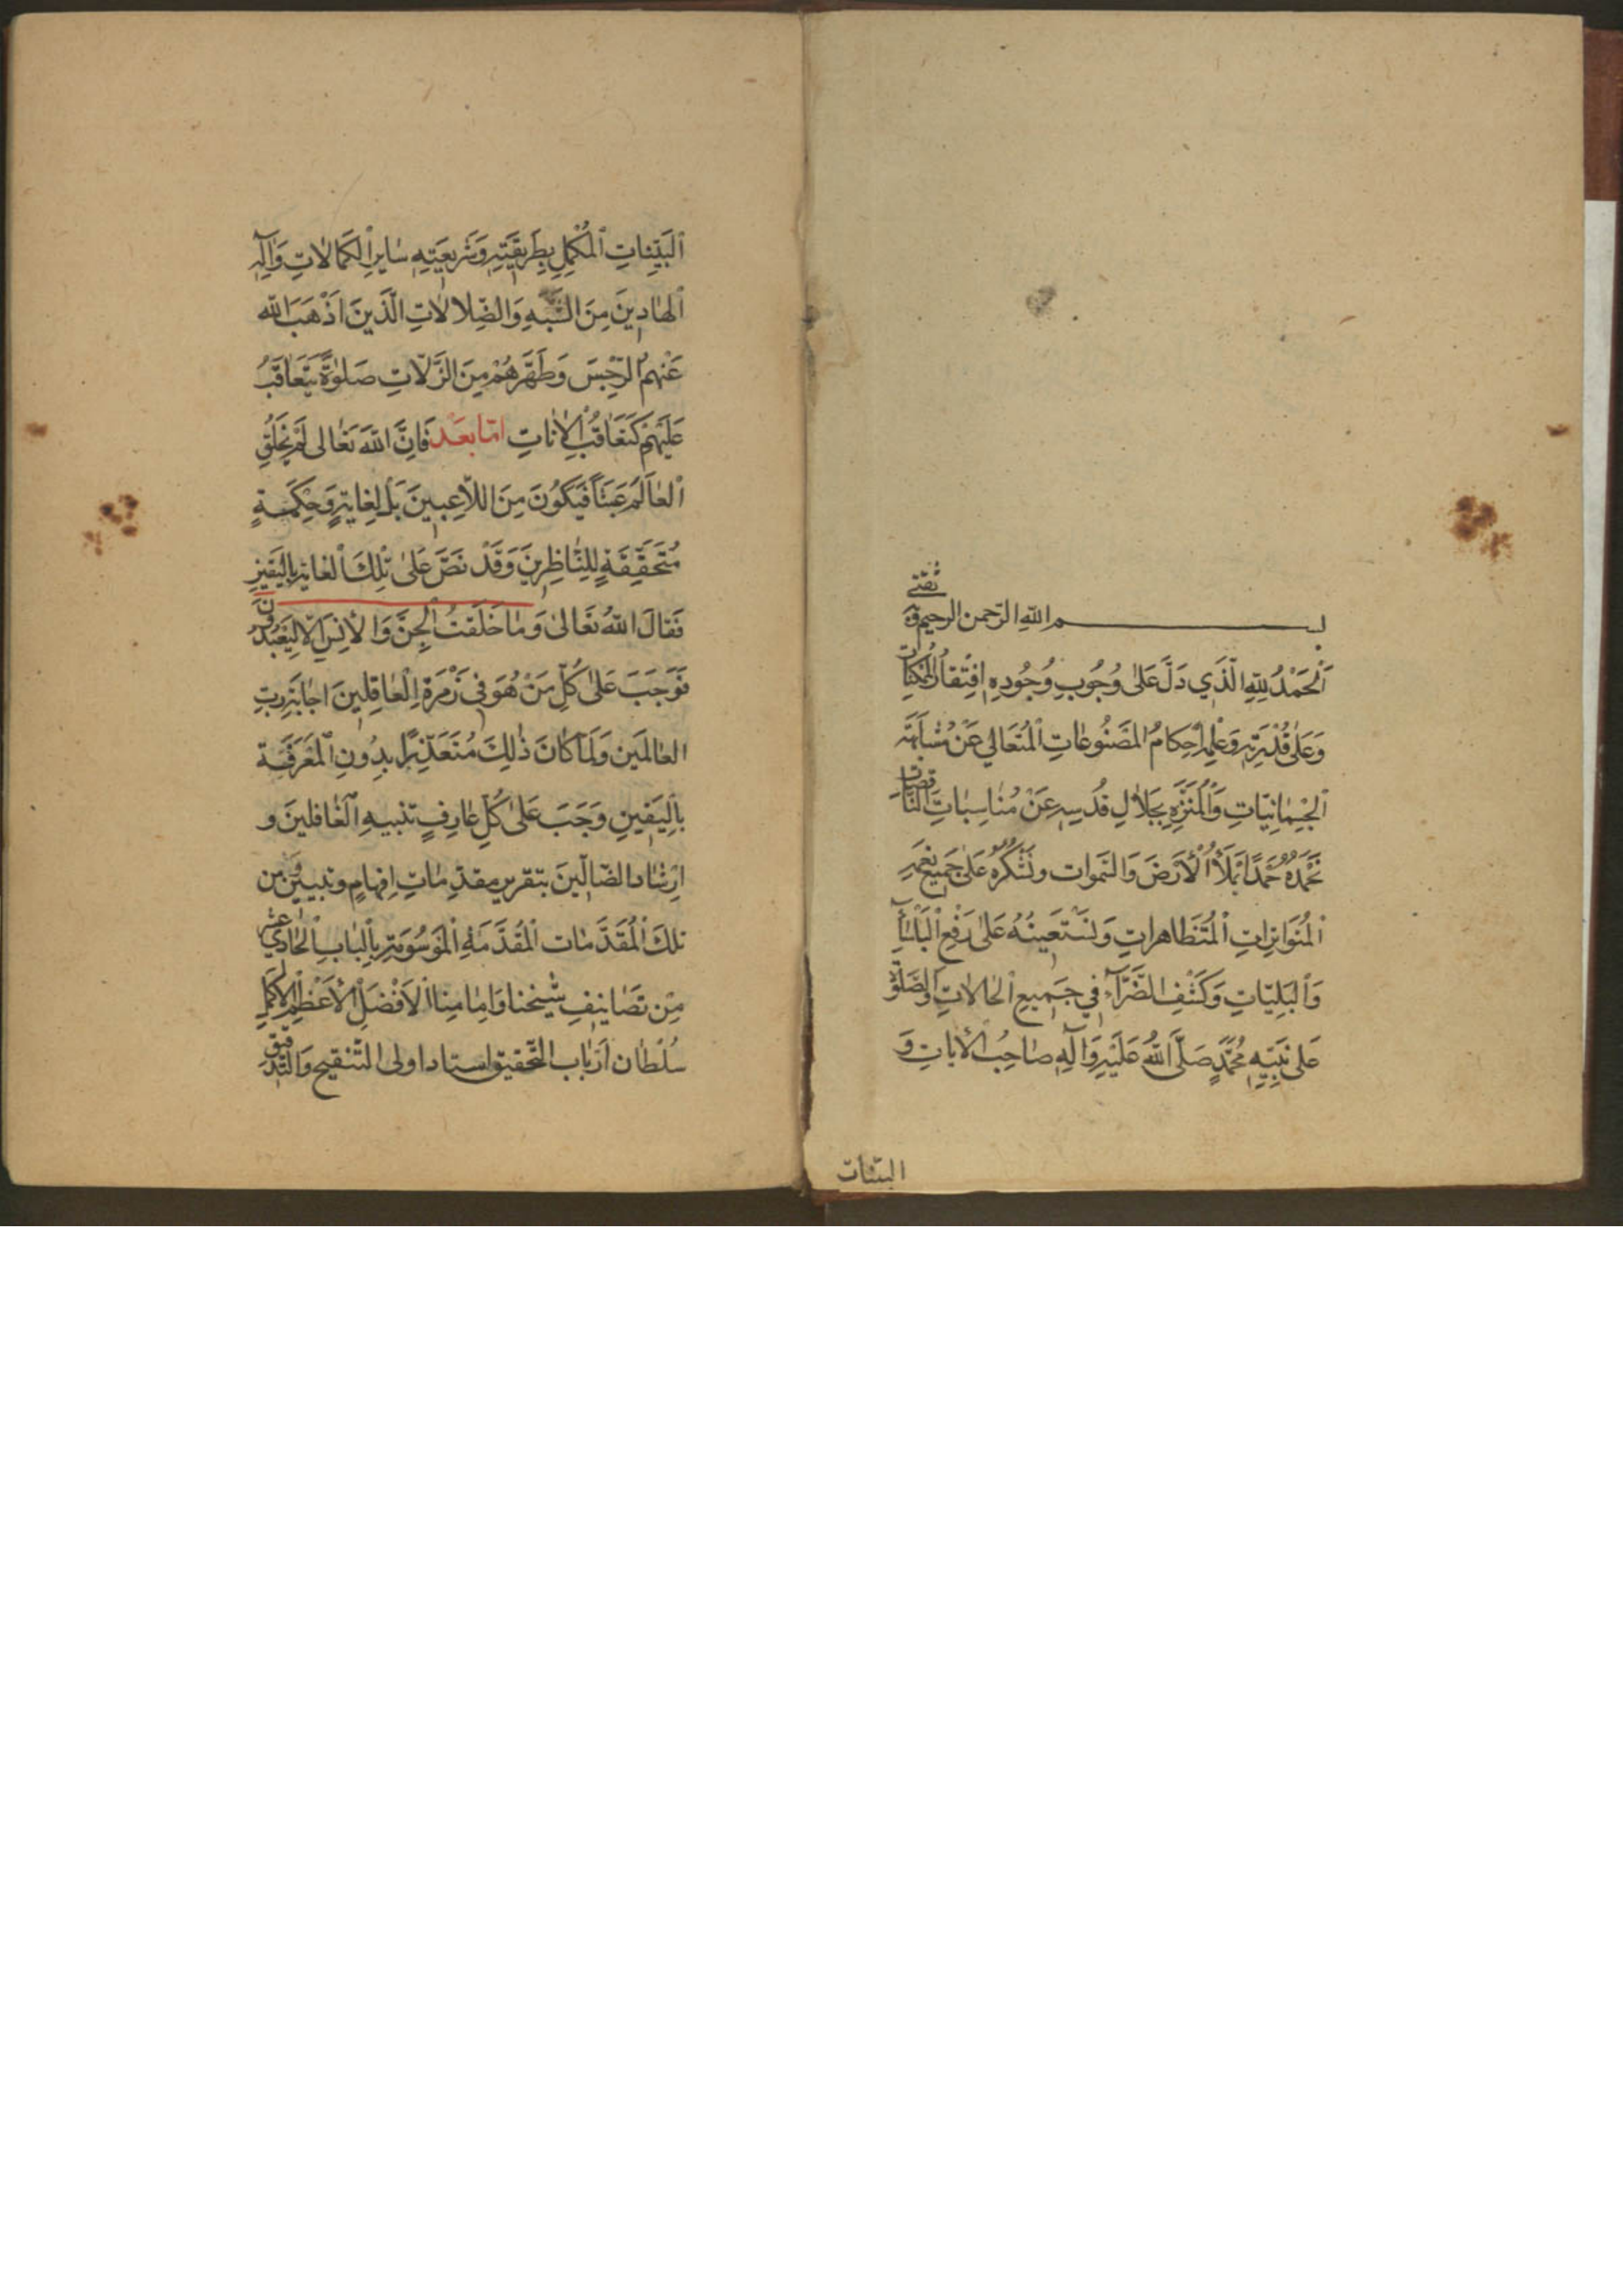 بسم الله الرحمن الرحيم وبه ثقتي
اَلْحَمْدُ لِلّٰهِ الَّذي دَلَّ عَلىٰ وُجُوبِ وُجُودِهِ افْتِقٰارُ الْمُمْكِنٰاتِ
وَعَلىٰ قُدْرَتِهِ وَعِلْمِهِ اِحْكامُ الْمَصْنُوعٰاتِ الْمُتَعٰالي عَنْ مُشٰابَهَةِ
الْجِسْمٰانِيّاتِ وَالْمُنَزَّهِ بِجَلٰالِ قُدْسِهِ عَنْ مُنٰاسِبٰاتِ النّاقِصٰاتِ
نَحْمَدُهُ حَمْدًا يَمْلَأُ الْأَرْضَ وَالسَّموات ونَشْكُرُهُ عَلىٰ جَميعِ نِعَمِهِ
الْمُتَوٰاتِرٰاتِ الْمُتَظٰاهراتِ وَنَسْتَعينُهُ عَلىٰ رَفْعِ الْبَأْسٰآءِ
وَالْبَلِيّاتِ وَكَشْفِ الضَّرّآءِ في جَميعِ الْحٰالاتِ والصَّلوٰةُ
عَلىٰ نَبِيِّهِ مُحَمَّدٍ صَلَّى اللهُ عَلَيْهِ وَآلِهِ صٰاحِبِ الْاٰياتِ وَ
البيّنات
الْبَيِّنٰاتِ الْمُكْمِلِ بِطَريقَتِهِ وَشَريعَتِهِ سٰايِرَ الْكَمٰالاتِ وَآلِهِ
الْهٰادينَ مِنَ الشُّبَهِ وَالضَّلالٰاتِ الَّذينَ اَذْهَبَ الله
عَنْهُمُ الرِّجْسَ وَطَهَّرَهُمْ مِنَ الزَّلّاتِ صَلوٰةً يَتَعٰاقَبُ
عَلَيْهِمْ كَتَعٰاقُبِ الْاٰنٰاتِ امّا بَعْد فَاِنَّ اللهَ تَعٰالى لَمْ يَخْلُقِ
الْعٰالَمَ عَبَثًا فَيَكُونَ مِنَ اللّاعِبينَ بَلْ لِغٰايَةٍ وَحِكْمَةٍ
مُتَحَقِّقَةٍ لِلنّٰاظِرينَ وَقَدْ نَصَّ عَلىٰ تِلْكَ الْغٰايَةِ بِالْيَقينِ
فَقٰالَ اللهُ تَعٰالىٰ وَمٰا خَلَقْتُ الْجِنَّ وَالْأِنْسَ اِلّا لِيَعْبُدُونِ
فَوَجَبَ عَلىٰ كُلِّ مَنْ هُوَ في زُمْرَةِ الْعٰاقِلينَ اجٰابَةُ رَبِّ
العٰالَمينَ وَلَمّٰا كٰانَ ذٰلِكَ مُتَعَذِّرًا بِدُونِ الْمَعْرِفَةِ
بِالْيَقينِ وَجَبَ عَلىٰ كُلِّ عٰارِفٍ تنبيهِ الْغٰافلينَ و
ارْشٰاد الضّالّينَ بتقرير مقدّمٰاتٍ اِفهامٍ وتبيينٍ وَمن
تلكَ الْمُقَدَّمٰات الْمُقَدَّمَةِ الْمَوْسُومَةِ بِالْبٰابِ الْحٰادي عشر
مِن تَصٰانيفِ شَيْخنا وَاِمٰامِنٰا الْاَفْضَلِ الْأَعْظَمِ الْاَكْمَلِ
سُلْطٰان اَرْبٰاب التَّحْقيق استاد اولى التّنْقيح وَالتّدْقيق